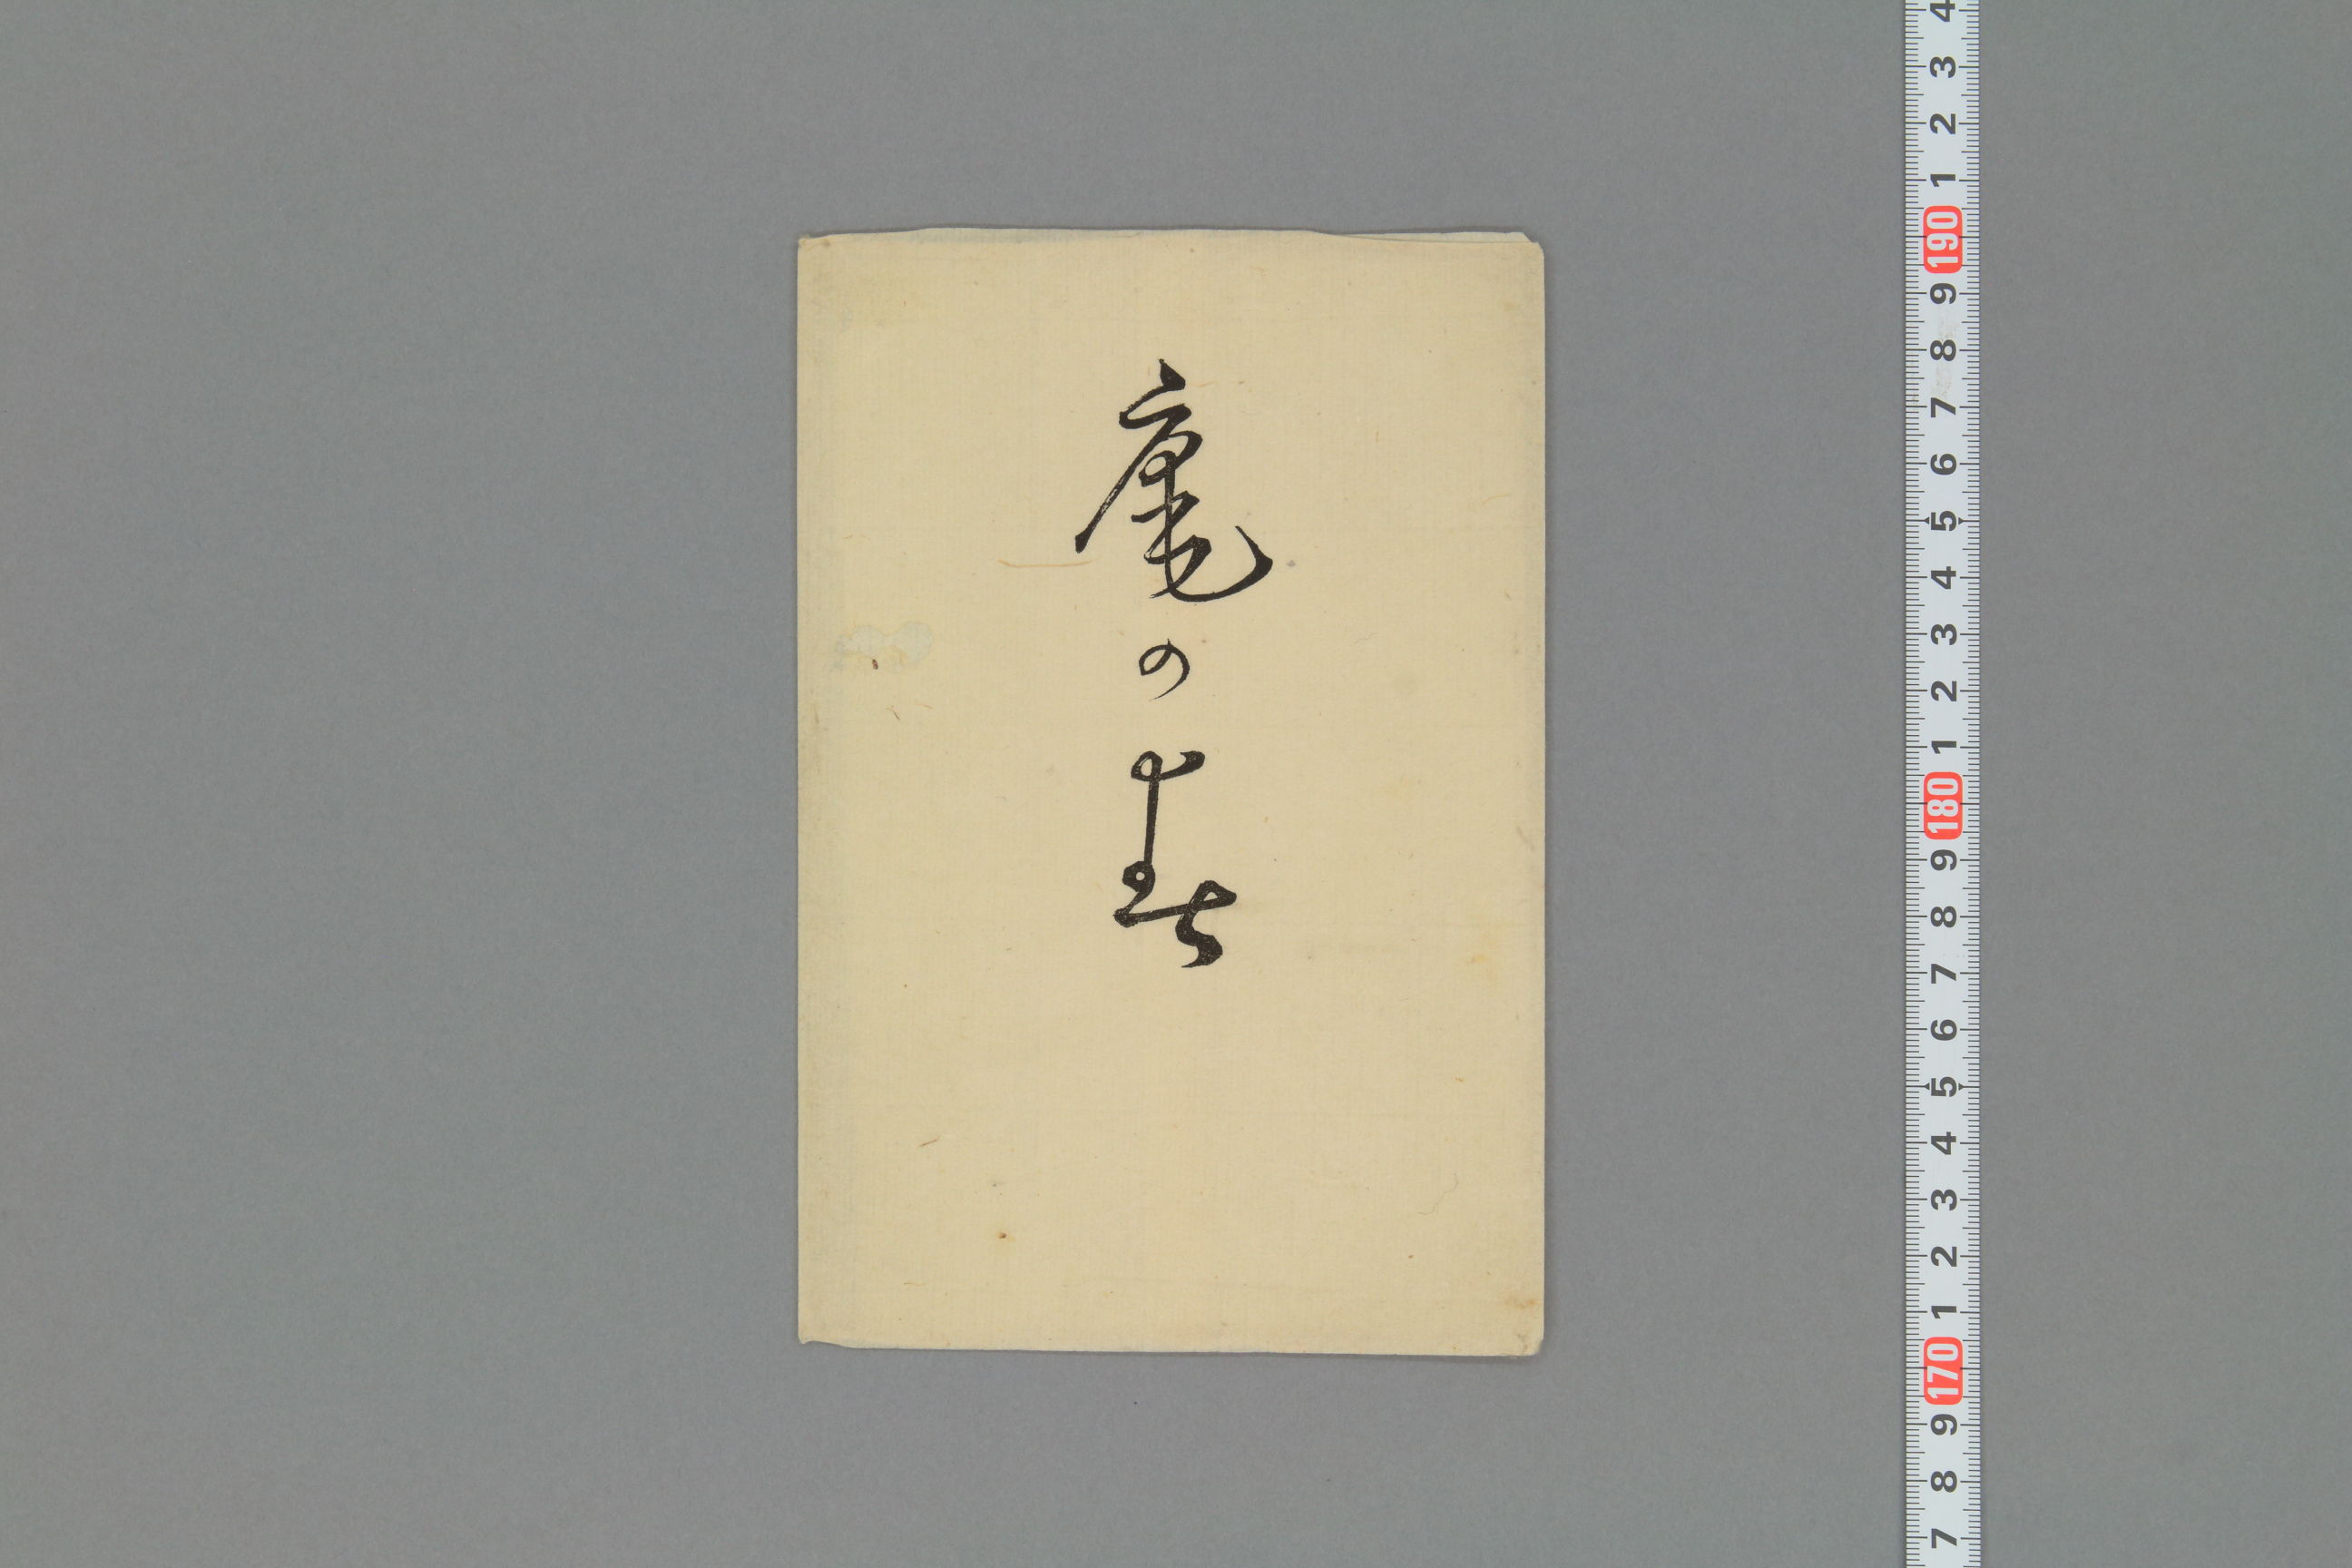 庵の
4 3 2 1 190 9 8 7 6 5 4 3 2 1 180 9 8 7 6 5 4 3 2 1 170 9 8 7